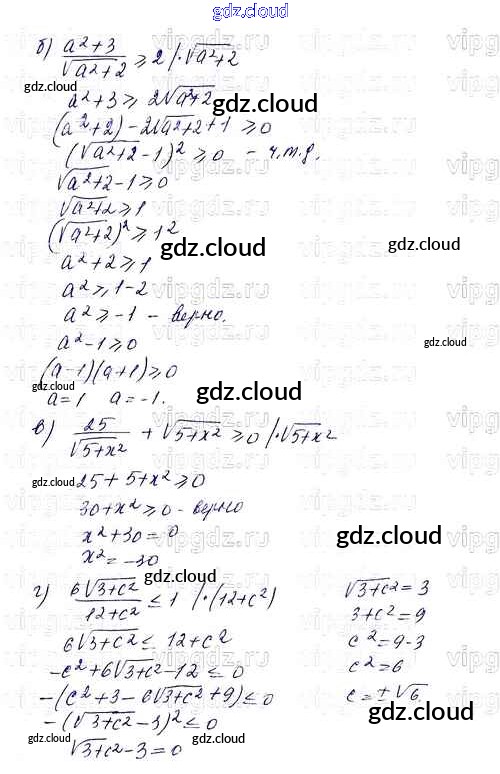 gdz.cloud
б) a²+3/√(a²+2) ≥ 2 /·√(a²+2)
gdz.cloud
a²+3 ≥ 2√(a²+2)
gdz.cloud
(a²+2) - 2√(a²+2) + 1 ≥ 0
(√(a²+2) - 1)² ≥ 0 - ч.т.д.
gdz.cloud
√(a²+2) - 1 ≥ 0
√(a²+2) ≥ 1
(√(a²+2))² ≥ 1²
gdz.cloud
gdz.cloud
a²+2 ≥ 1
a² ≥ 1-2
a² ≥ -1 - верно.
a²-1 ≥ 0
gdz.cloud
gdz.cloud
(a-1)(a+1) ≥ 0
a=1 a=-1.
gdz.cloud
в) 25/√(5+x²) + √(5+x²) ≥ 0 /·√(5+x²)
gdz.cloud
25+5+x² ≥ 0
gdz.cloud
30+x² ≥ 0 - верно
x²+30=0
x²=-30
gdz.cloud
gdz.cloud
г) 6√(3+c²)/12+c² ≤ 1 /·(12+c²)
6√(3+c²) ≤ 12+c²
-c²+6√(3+c²)-12 ≤ 0
-(c²+3-6√(3+c²)+9) ≤ 0
-(√(3+c²)-3)² ≤ 0
√(3+c²)-3=0
√(3+c²)=3
3+c²=9
c²=9-3
c²=6
c=±√6
gdz.cloud
gdz.cloud
gdz.cloud
gdz.cloud